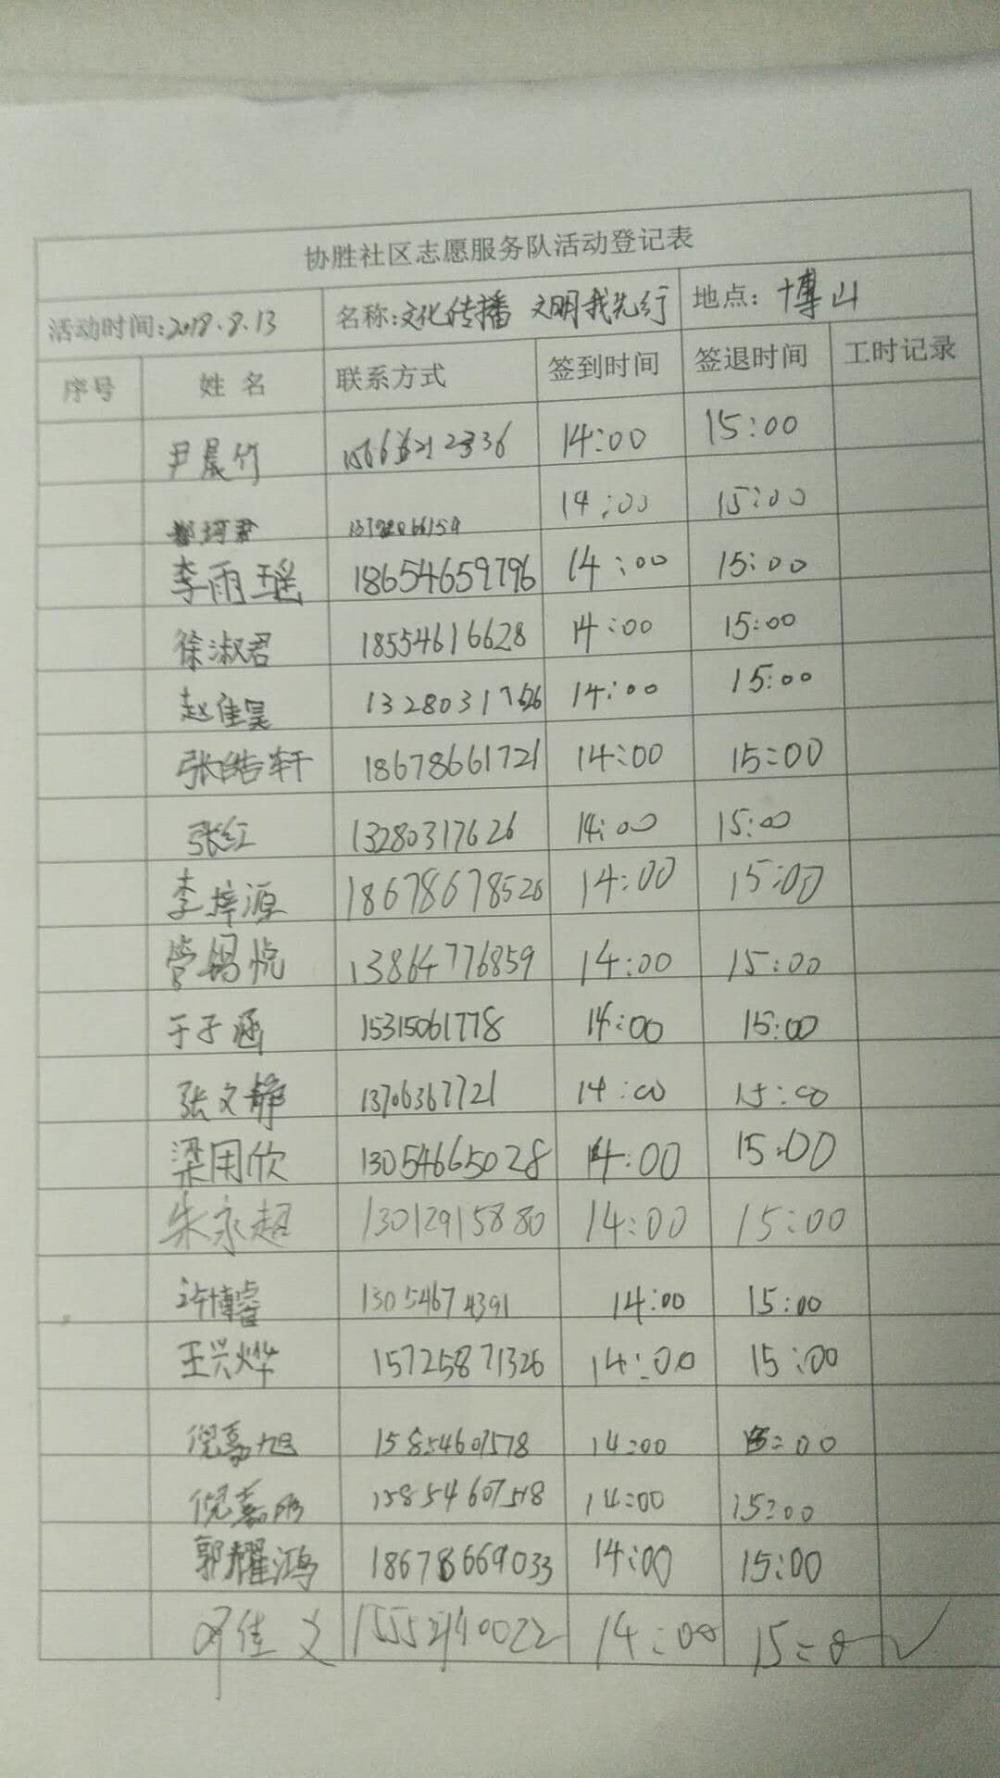 协胜社区志愿服务队活动登记表
活动时间:2018.8.13 名称:文化传播 文明我先行 地点:博山
序号 姓名 联系方式 签到时间 签退时间 工时记录
尹晨竹 14:00 15:00
14:00 15:00
李雨瑶 18654659796 14:00 15:00
徐淑君 18554616628 14:00 15:00
赵佳昊 13280317626 14:00 15:00
张皓轩 18678661721 14:00 15:00
张红 13280317626 14:00 15:00
李梓源 18678678526 14:00 15:00
管锡悦 13864776859 14:00 15:00
于子涵 15315061778 14:00 15:00
张文静 13706367721 14:00 15:00
梁用欣 13054665028 14:00 15:00
朱永超 13012915880 14:00 15:00
许博睿 13054674391 14:00 15:00
王兴烨 15725871326 14:00 15:00
倪嘉旭 15854607578 14:00 15:00
倪嘉 14:00 15:00
郭耀鸿 18678669033 14:00 15:00
邓佳文 14:00